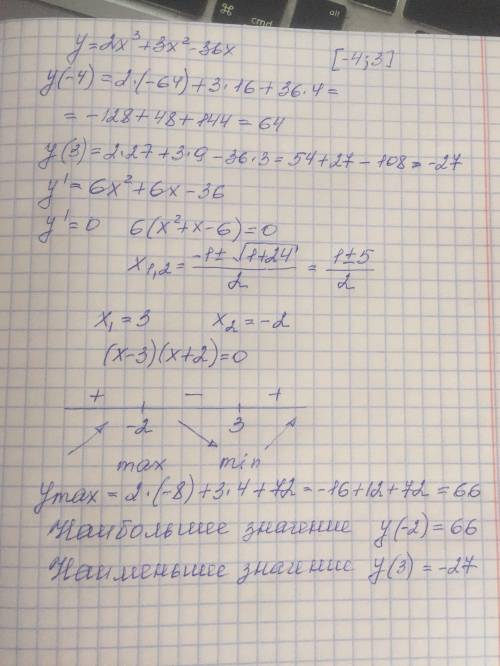 cmd
y=2x³+3x²-36x [-4;3]
y(-4)=2·(-64)+3·16+36·4=
=-128+48+144=64
y(3)=2·27+3·9-36·3=54+27-108=-27
y'=6x²+6x-36
y'=0 6(x²+x-6)=0
x₁,₂=(-1±√(1+24))/2=(1±5)/2
x₁=3 x₂=-2
(x-3)(x+2)=0
+ - +
-2 3
max min
ymax=2·(-8)+3·4+72=-16+12+72=66
Наибольшее значение y(-2)=66
Наименьшее значение y(3)=-27